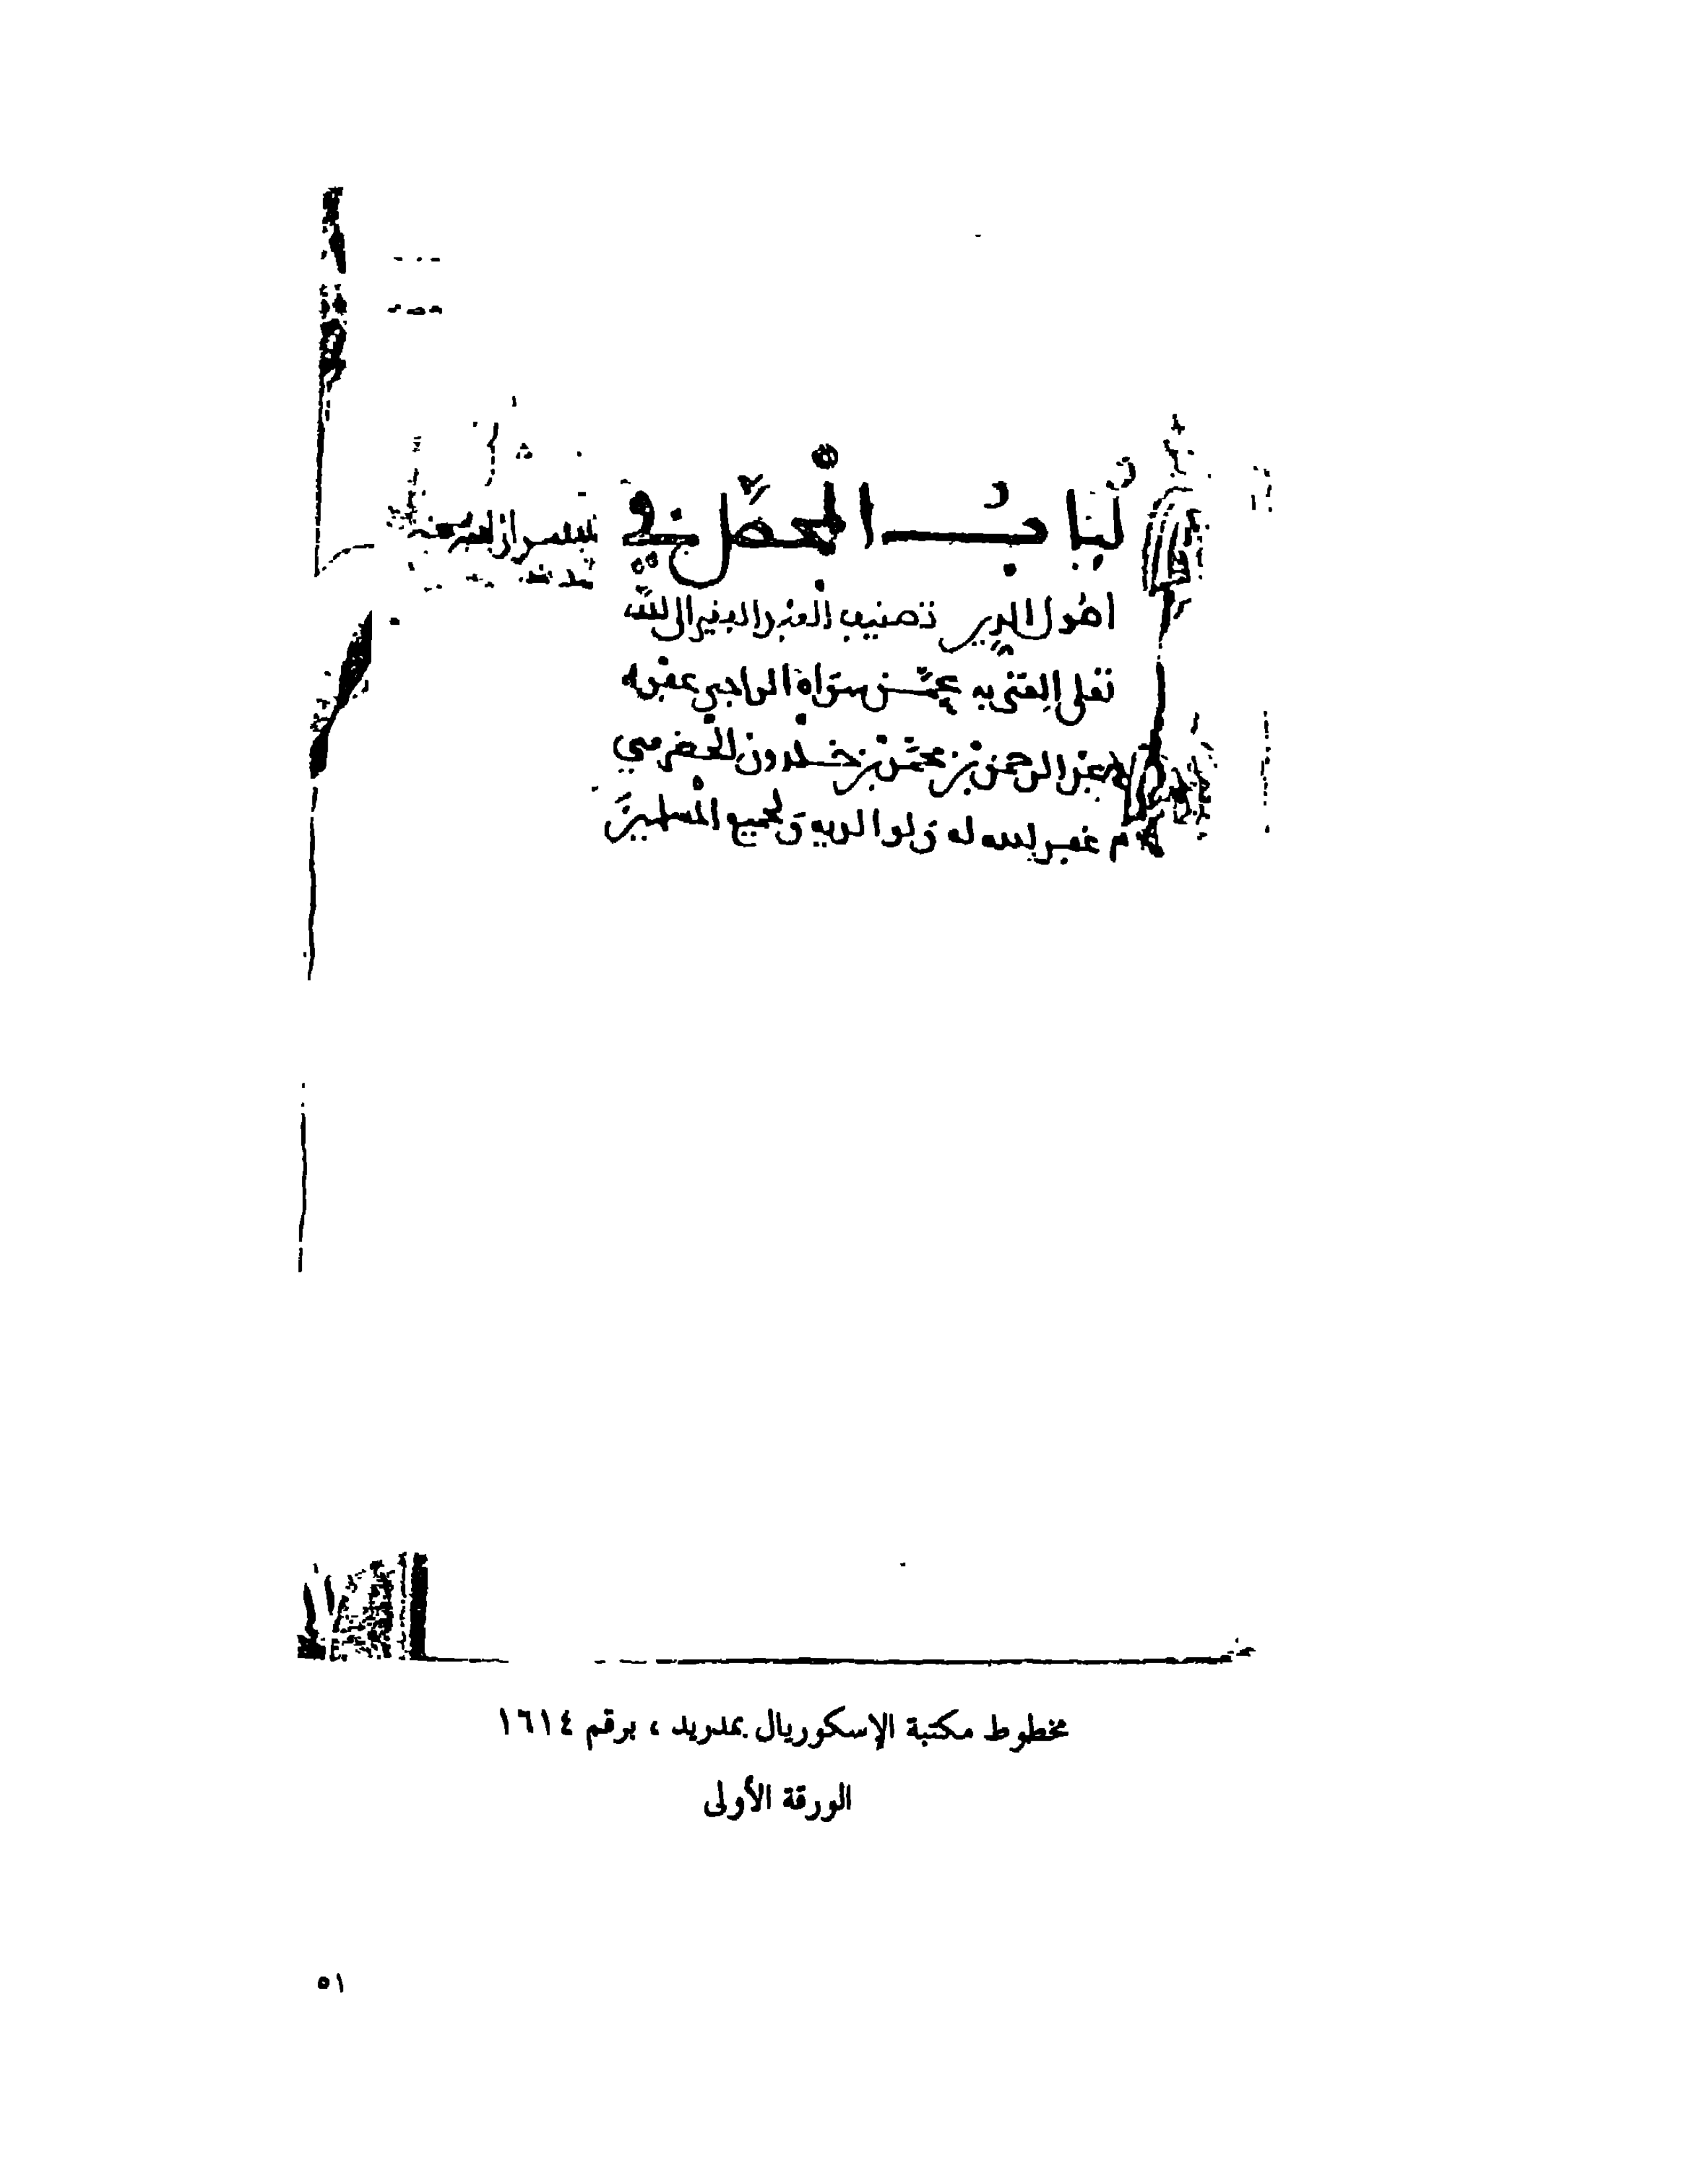 لباب المحصل في
أصول الدين تصنيف العبد الفقير إلى الله
تعلى الغني به عمن سواه الراجي عفوه
عبد الرحمن بن محمد بن خلدون الحضرمي
غفر الله له ولوالديه ولجميع المسلمين
مخطوط مكتبة الإسكوريال بمدريد ، برقم ١٦١٤
الورقة الأولى
٥١